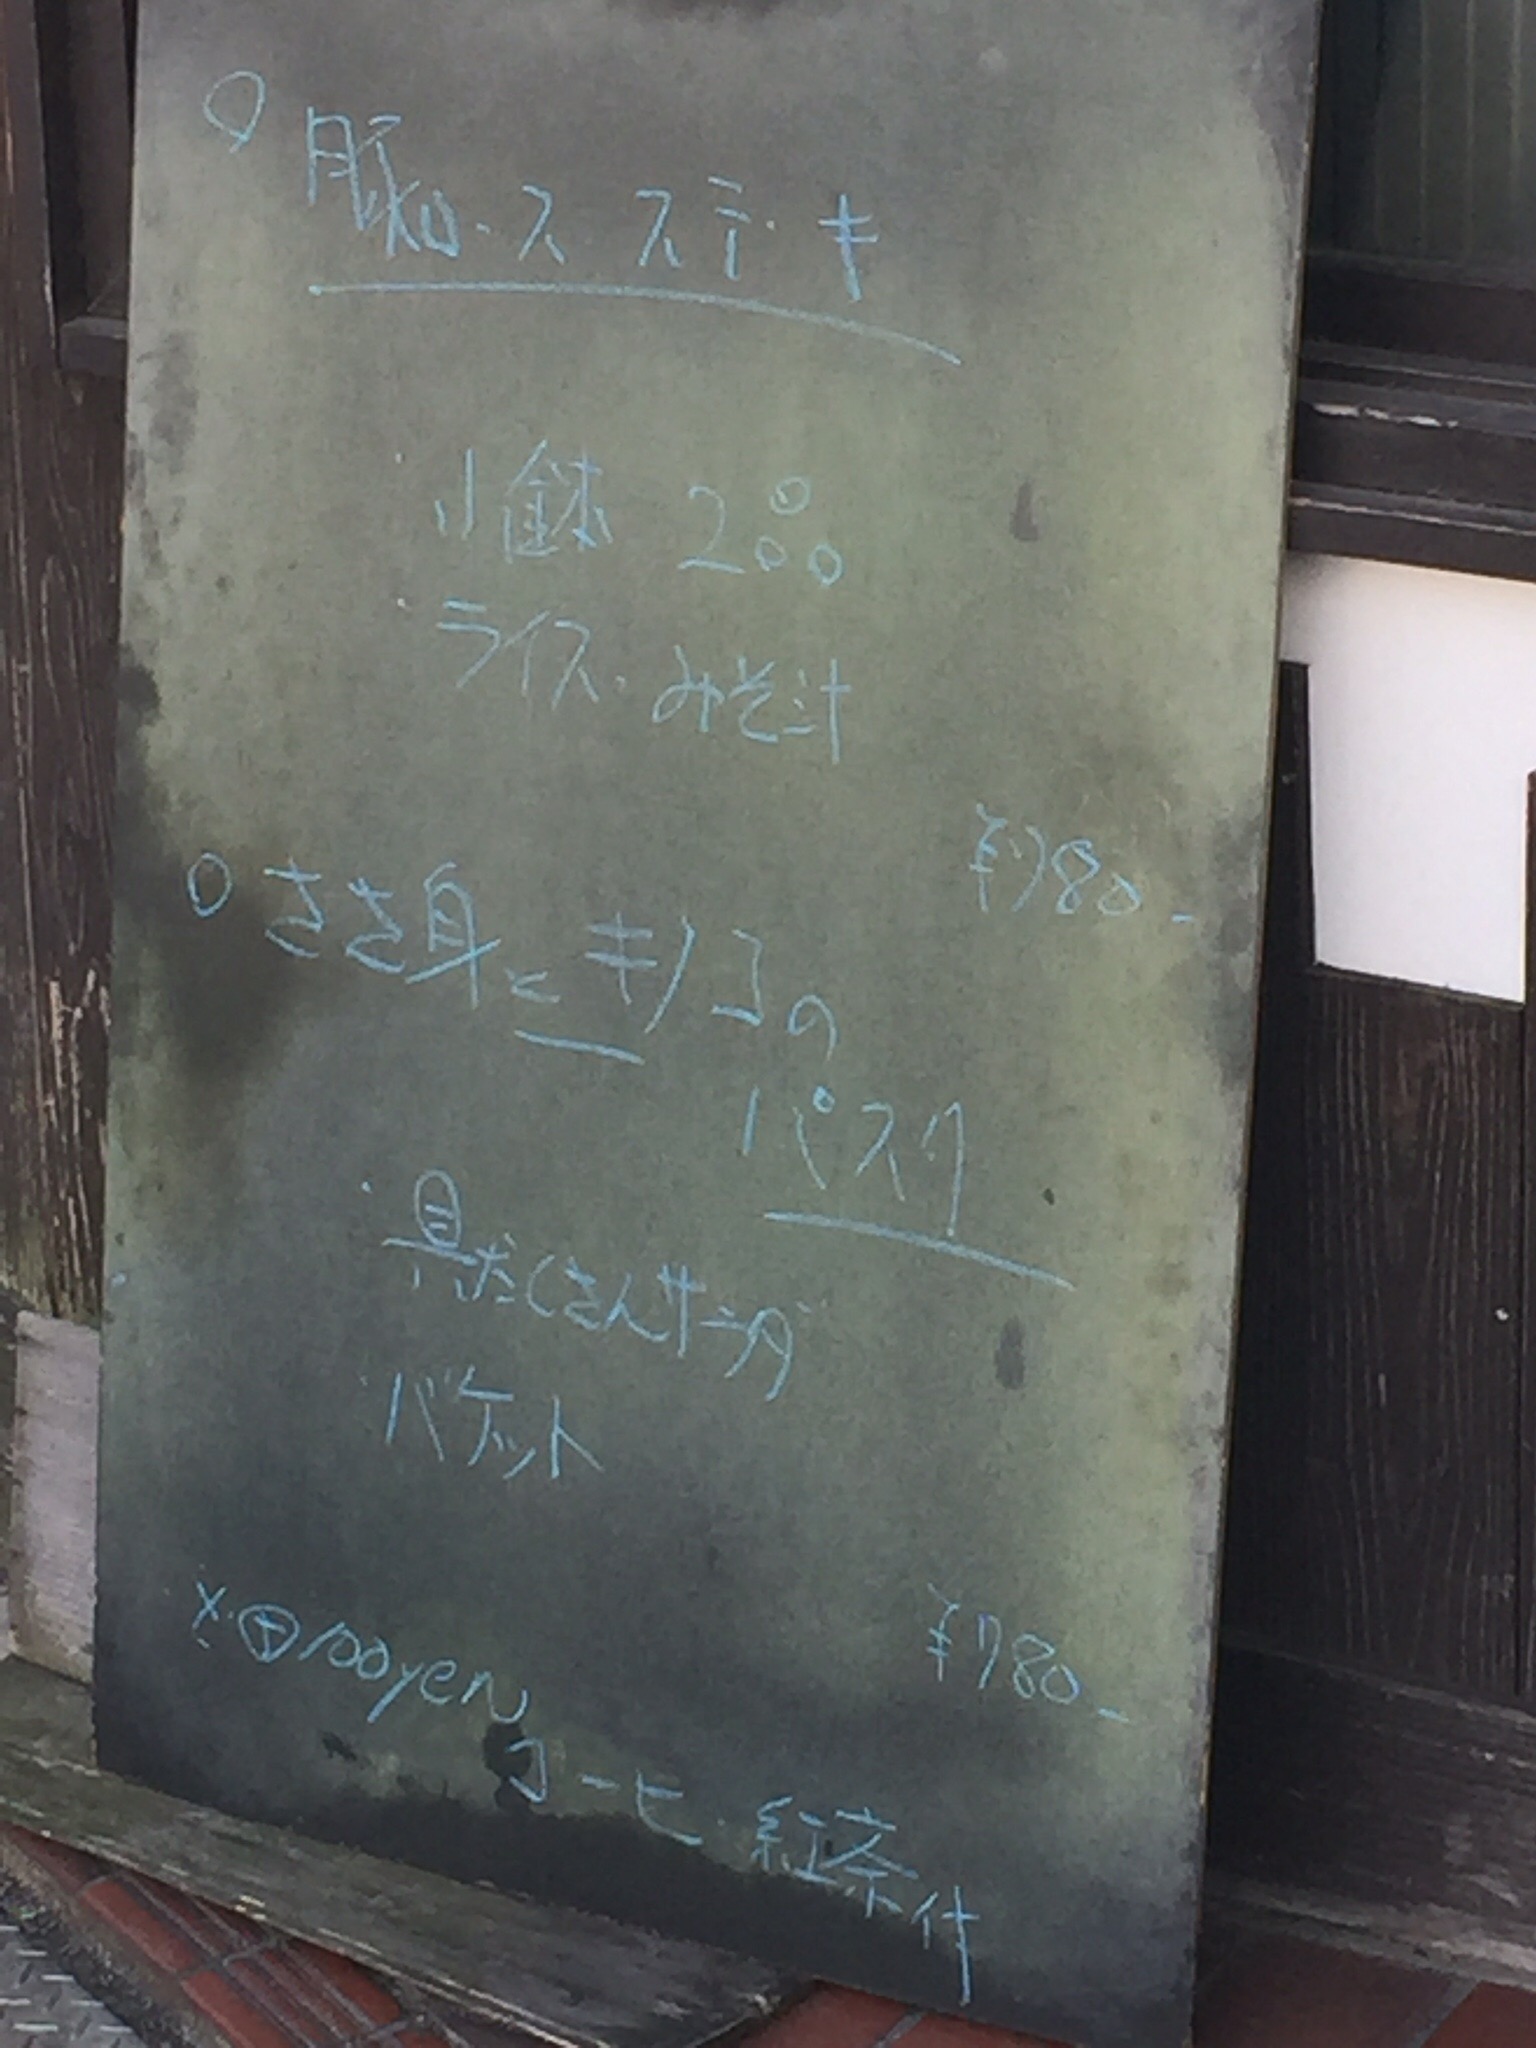 ○ 豚ロースステーキ
・小鉢 2品
・ライス・みそ汁
¥780-
○ ささ身とキノコの
パスタ
・具だくさんサラダ
・バケット
¥780-
※ ⊕100yen
コーヒ・紅茶付